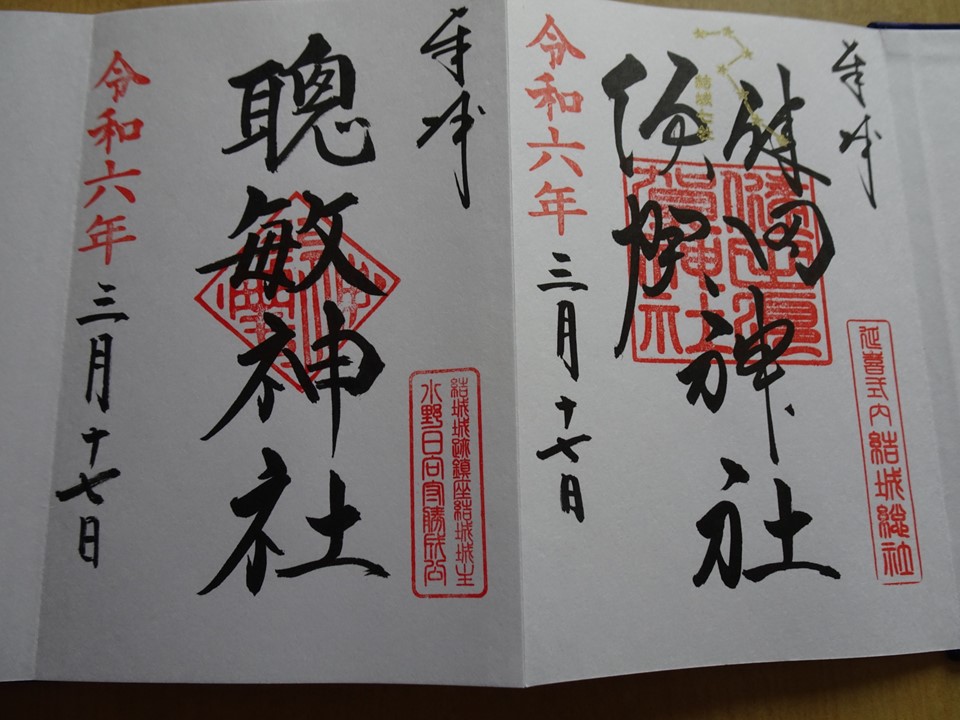 奉拝
延喜式内 結城総社
健田
須賀
神社
健田須
賀神社
結城七社
令和六年三月十七日
奉拝
結城城跡鎮座結城城主
水野日向守勝成公
聰敏神社
令和六年三月十七日